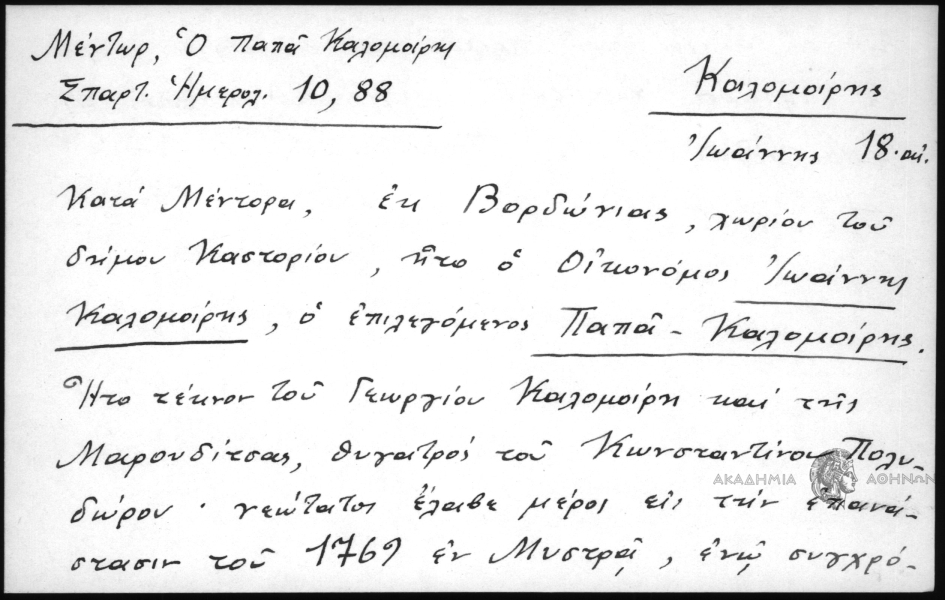 Μέντωρ, Ὁ Παπᾶ Καλομοίρη
Σπαρτ. Ἡμερολ. 10, 88
Καλομοίρης
Ἰωάννης 18. αἰ.
Κατά Μέντορα, ἐκ Βορδώνιας, χωρίου τοῦ
δήμου Καστορίου, ἦτο ὁ Οἰκονόμος Ἰωάννης
Καλομοίρης, ὁ ἐπιλεγόμενος Παπᾶ - Καλομοίρης.
Ἦτο τέκνον τοῦ Γεωργίου Καλομοίρη καί τῆς
Μαρουδίτσας, θυγατρός τοῦ Κωνσταντίνου Πολυ-
δώρου · νεώτατος ἔλαβε μέρος εἰς τήν ἐπανά-
στασιν τοῦ 1769 ἐν Μυστρᾷ, ἐνῷ συγχρό-
ΑΚΑΔΗΜΙΑ ΑΘΗΝΩΝ